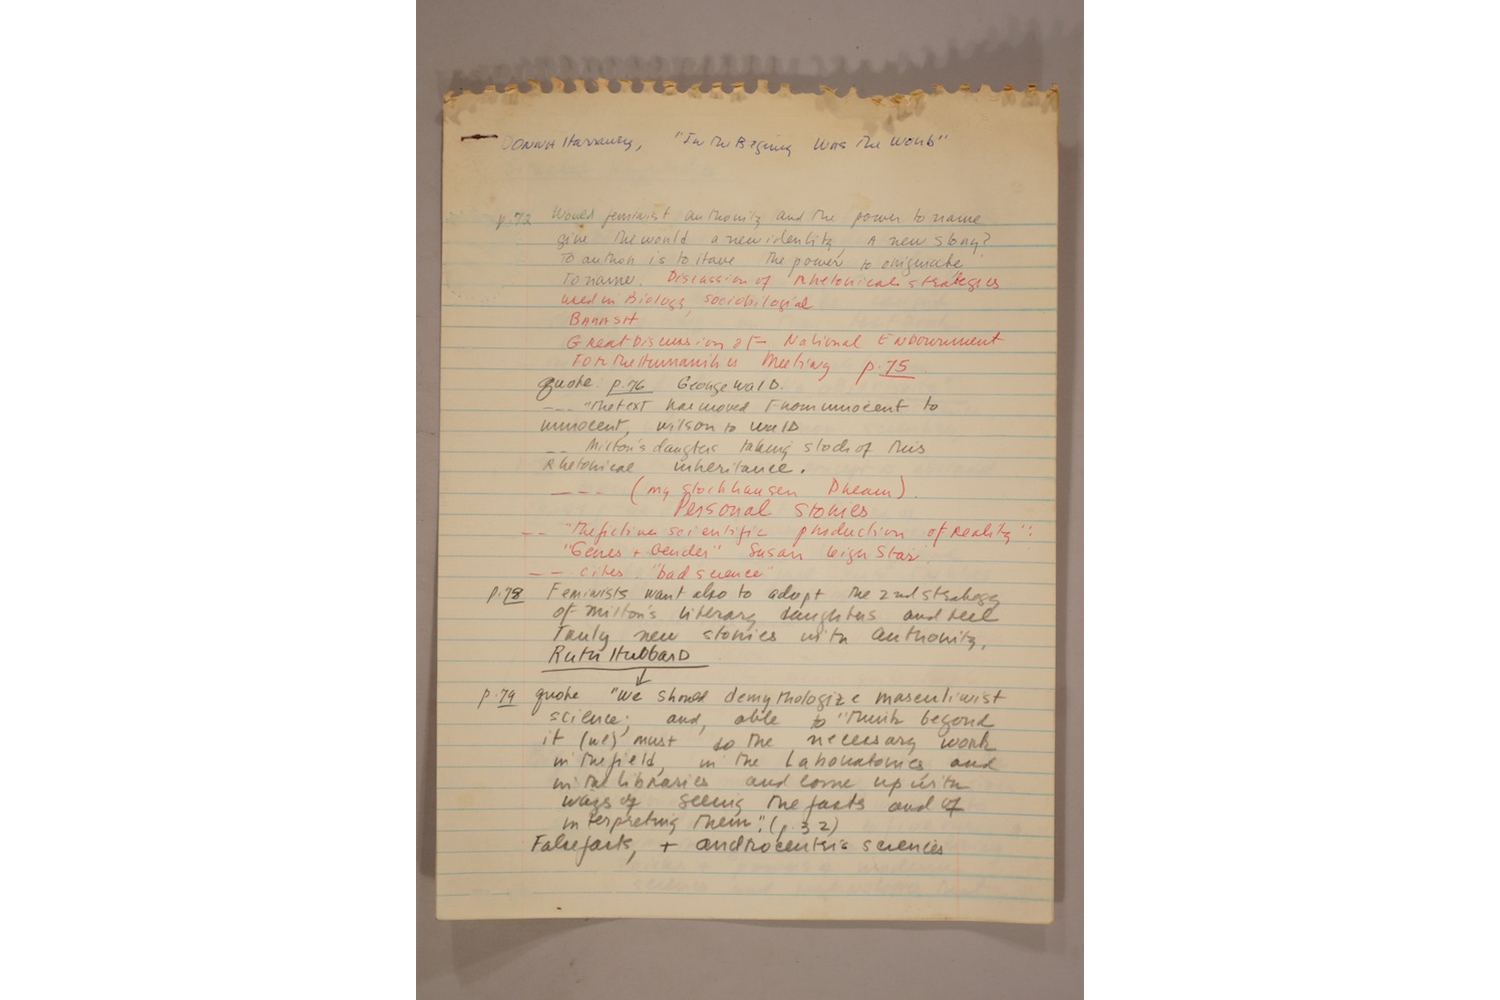 Donna Harraway, "In the Begining Was the Word"
p.72 Would feminist authority and the power to name
give the world a new identity, A new story?
To author is to Have the power to originate
To name. Discussion of Rhetorical strategies
used in Biology, sociobilogial
BARASH
Great Discussion of - National Endowment
For the Humanities Meeting p.75
quote p.76 George Wald.
--- "The text has moved From innocent to
innocent, wilson to Wald
-- Milton's daugters taking stock of this
Rhetorical inheritance.
---- (my Stockhausen Dream).
Personal stories
-- "The fictive scientific production of Reality":
"Genes + Gender" Susan Leigh Star
-- cites "bad science"
p.78 Feminists want also to adopt the 2nd strategy
of Milton's literary daughters and tell
Truly new stories with authority,
Ruth Hubbard
p.79 quote "we should demythologize masculinist
science; and, able to "think beyond
it (we) must do the necessary work
in the field, in the Laboratories and
in the libraries and come up with
ways of seeing the facts and of
interpreting them". (p.32)
False facts, + androcentric sciences